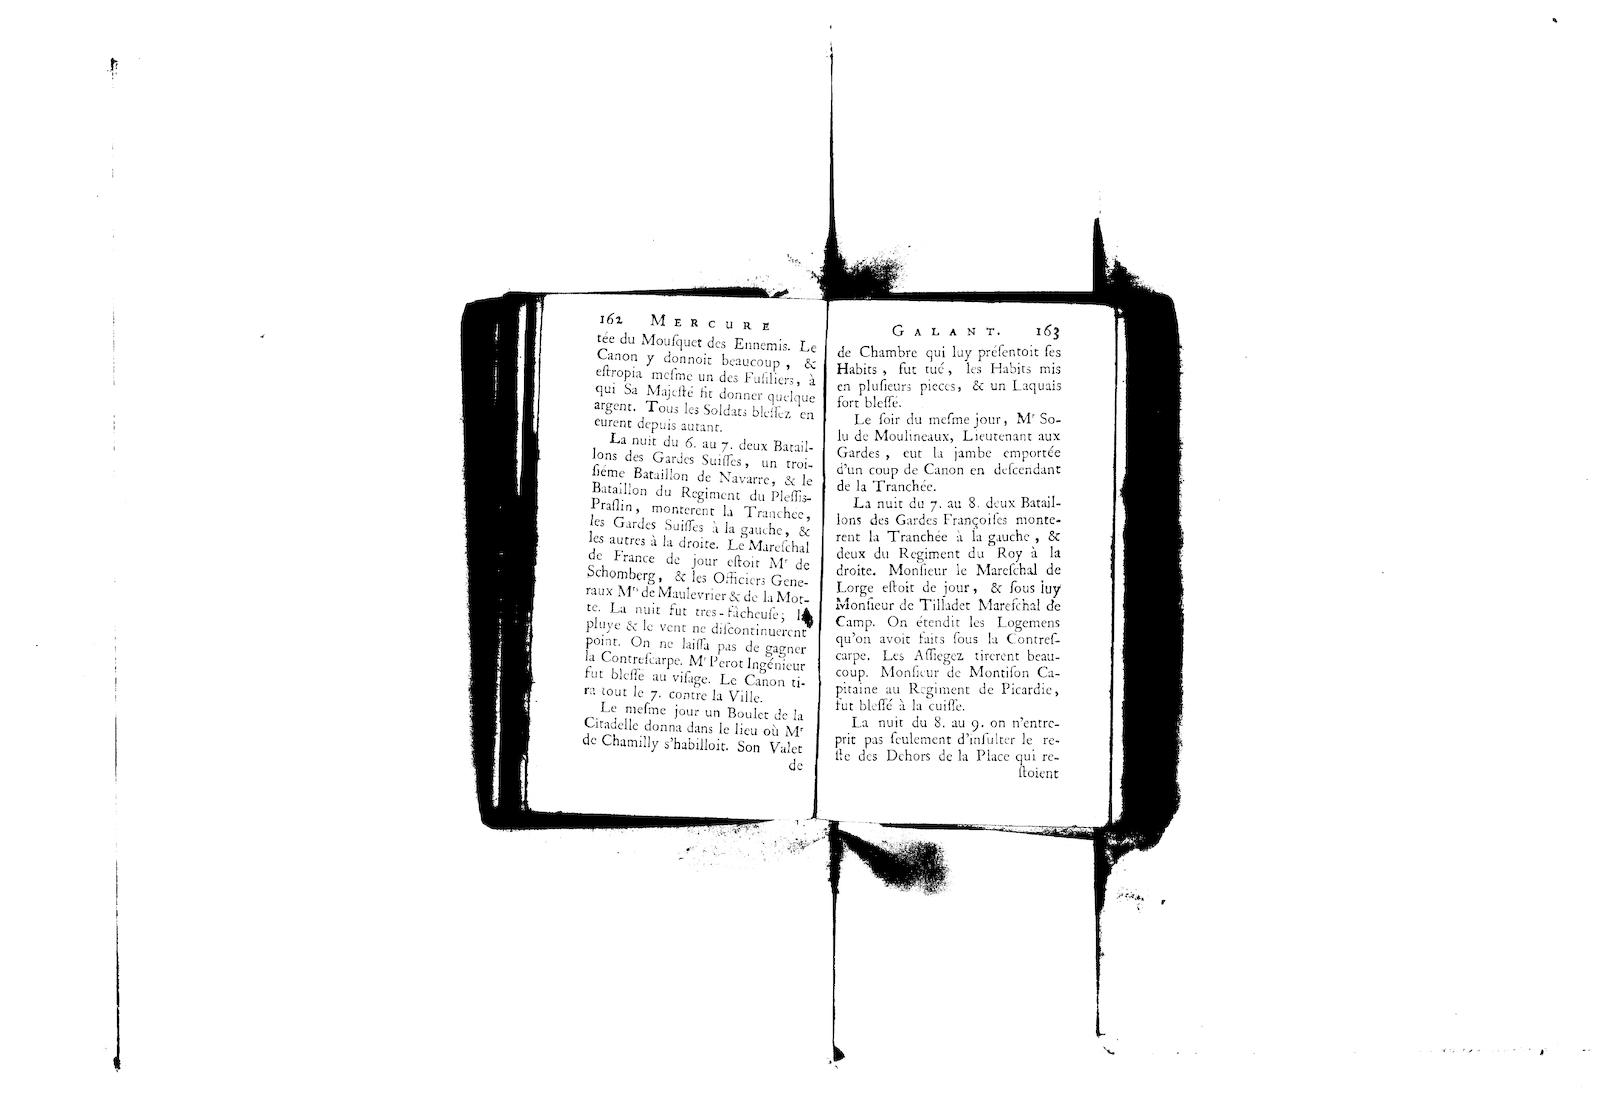 162 MERCURE
tée du Mouſquet des Ennemis. Le
Canon y donnoit beaucoup, &
eſtropia meſme un des Fuſiliers, à
qui Sa Majeſté fit donner quelque
argent. Tous les Soldats bleſſez en
eurent depuis autant.
La nuit du 6. au 7. deux Batail-
lons des Gardes Suiſſes, un troi-
ſiéme Bataillon de Navarre, & le
Bataillon du Regiment du Pleſſis-
Praſlin, monterent la Tranchée,
les Gardes Suiſſes à la gauche, &
les autres à la droite. Le Mareſchal
de France de jour eſtoit Mr de
Schomberg, & les Officiers Gene-
raux Mrs de Maulevrier & de la Mot-
te. La nuit fut tres-fâcheuſe; la
pluye & le vent ne diſcontinuerent
point. On ne laiſſa pas de gagner
la Contreſcarpe. Mr Perot Ingénieur
fut bleſſé au viſage. Le Canon ti-
ra tout le 7. contre la Ville.
Le meſme jour un Boulet de la
Citadelle donna dans le lieu où Mr
de Chamilly s'habilloit. Son Valet
de
GALANT. 163
de Chambre qui luy préſentoit ſes
Habits, fut tué, les Habits mis
en pluſieurs pieces, & un Laquais
fort bleſſé.
Le ſoir du meſme jour, Mr So-
lu de Moulineaux, Lieutenant aux
Gardes, eut la jambe emportée
d'un coup de Canon en deſcendant
de la Tranchée.
La nuit du 7. au 8. deux Batail-
lons des Gardes Françoiſes monte-
rent la Tranchée à la gauche, &
deux du Regiment du Roy à la
droite. Monſieur le Mareſchal de
Lorge eſtoit de jour, & ſous luy
Monſieur de Tilladet Mareſchal de
Camp. On étendit les Logemens
qu'on avoit faits ſous la Contreſ-
carpe. Les Aſſiegez tirerent beau-
coup. Monſieur de Montiſon Ca-
pitaine au Regiment de Picardie,
fut bleſſé à la cuiſſe.
La nuit du 8. au 9. on n'entre-
prit pas ſeulement d'inſulter le re-
ſte des Dehors de la Place qui re-
ſtoient